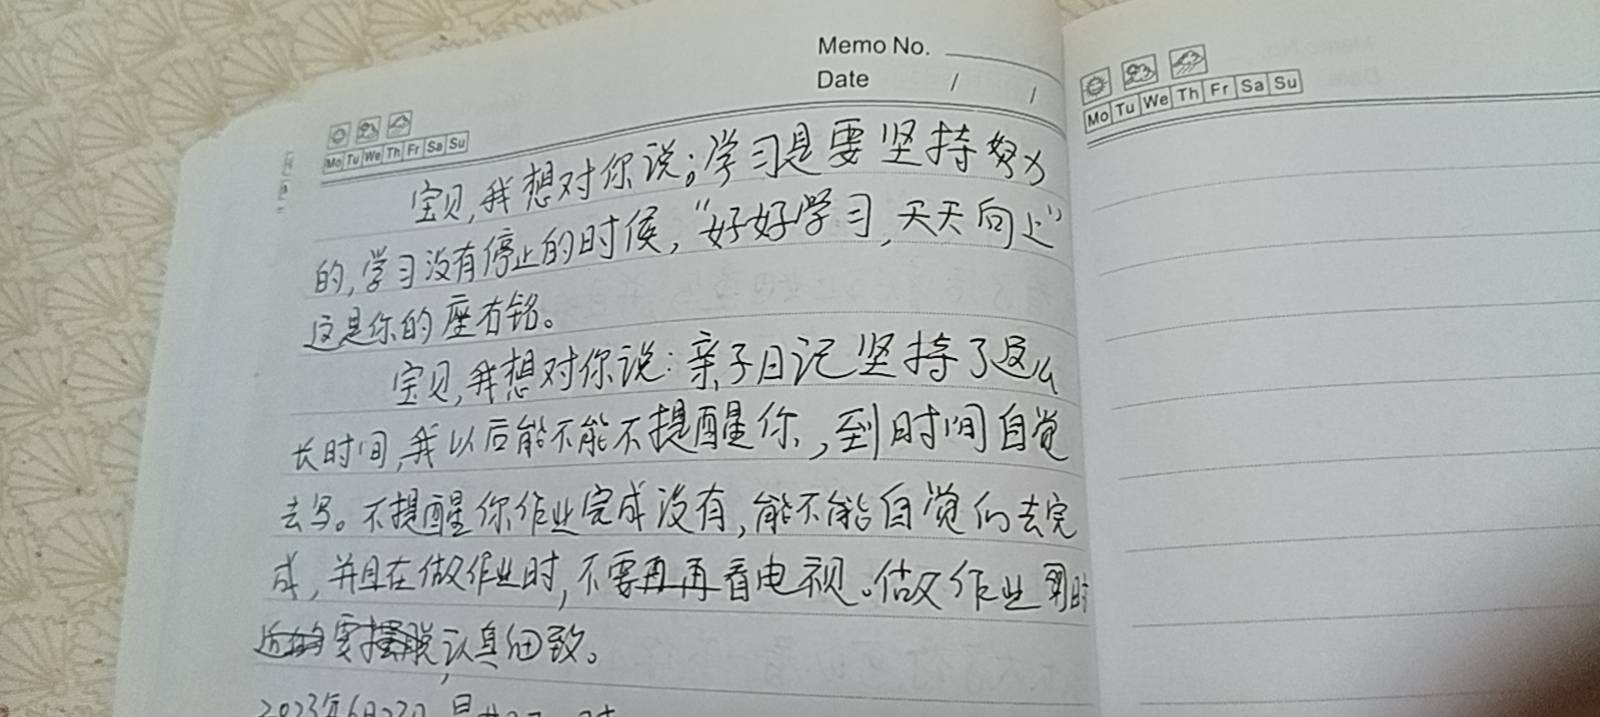 Memo No.
Date / /
Mo Tu We Th Fr Sa Su
宝贝,我想对你说:学习是要坚持努力
的,学习没有停止的时候,"好好学习,天天向上"
这是你的座右铭。
宝贝,我想对你说:亲子日记坚持了这么
长时间,我以后能不能不提醒你,到时间自觉
去写。不提醒你作业完成没有,能不能自觉的去完
成,并且在做作业时,不要再看电视。做作业时
要认真细致。
2023年6月22日 星期
Mo Tu We Th Fr Sa Su